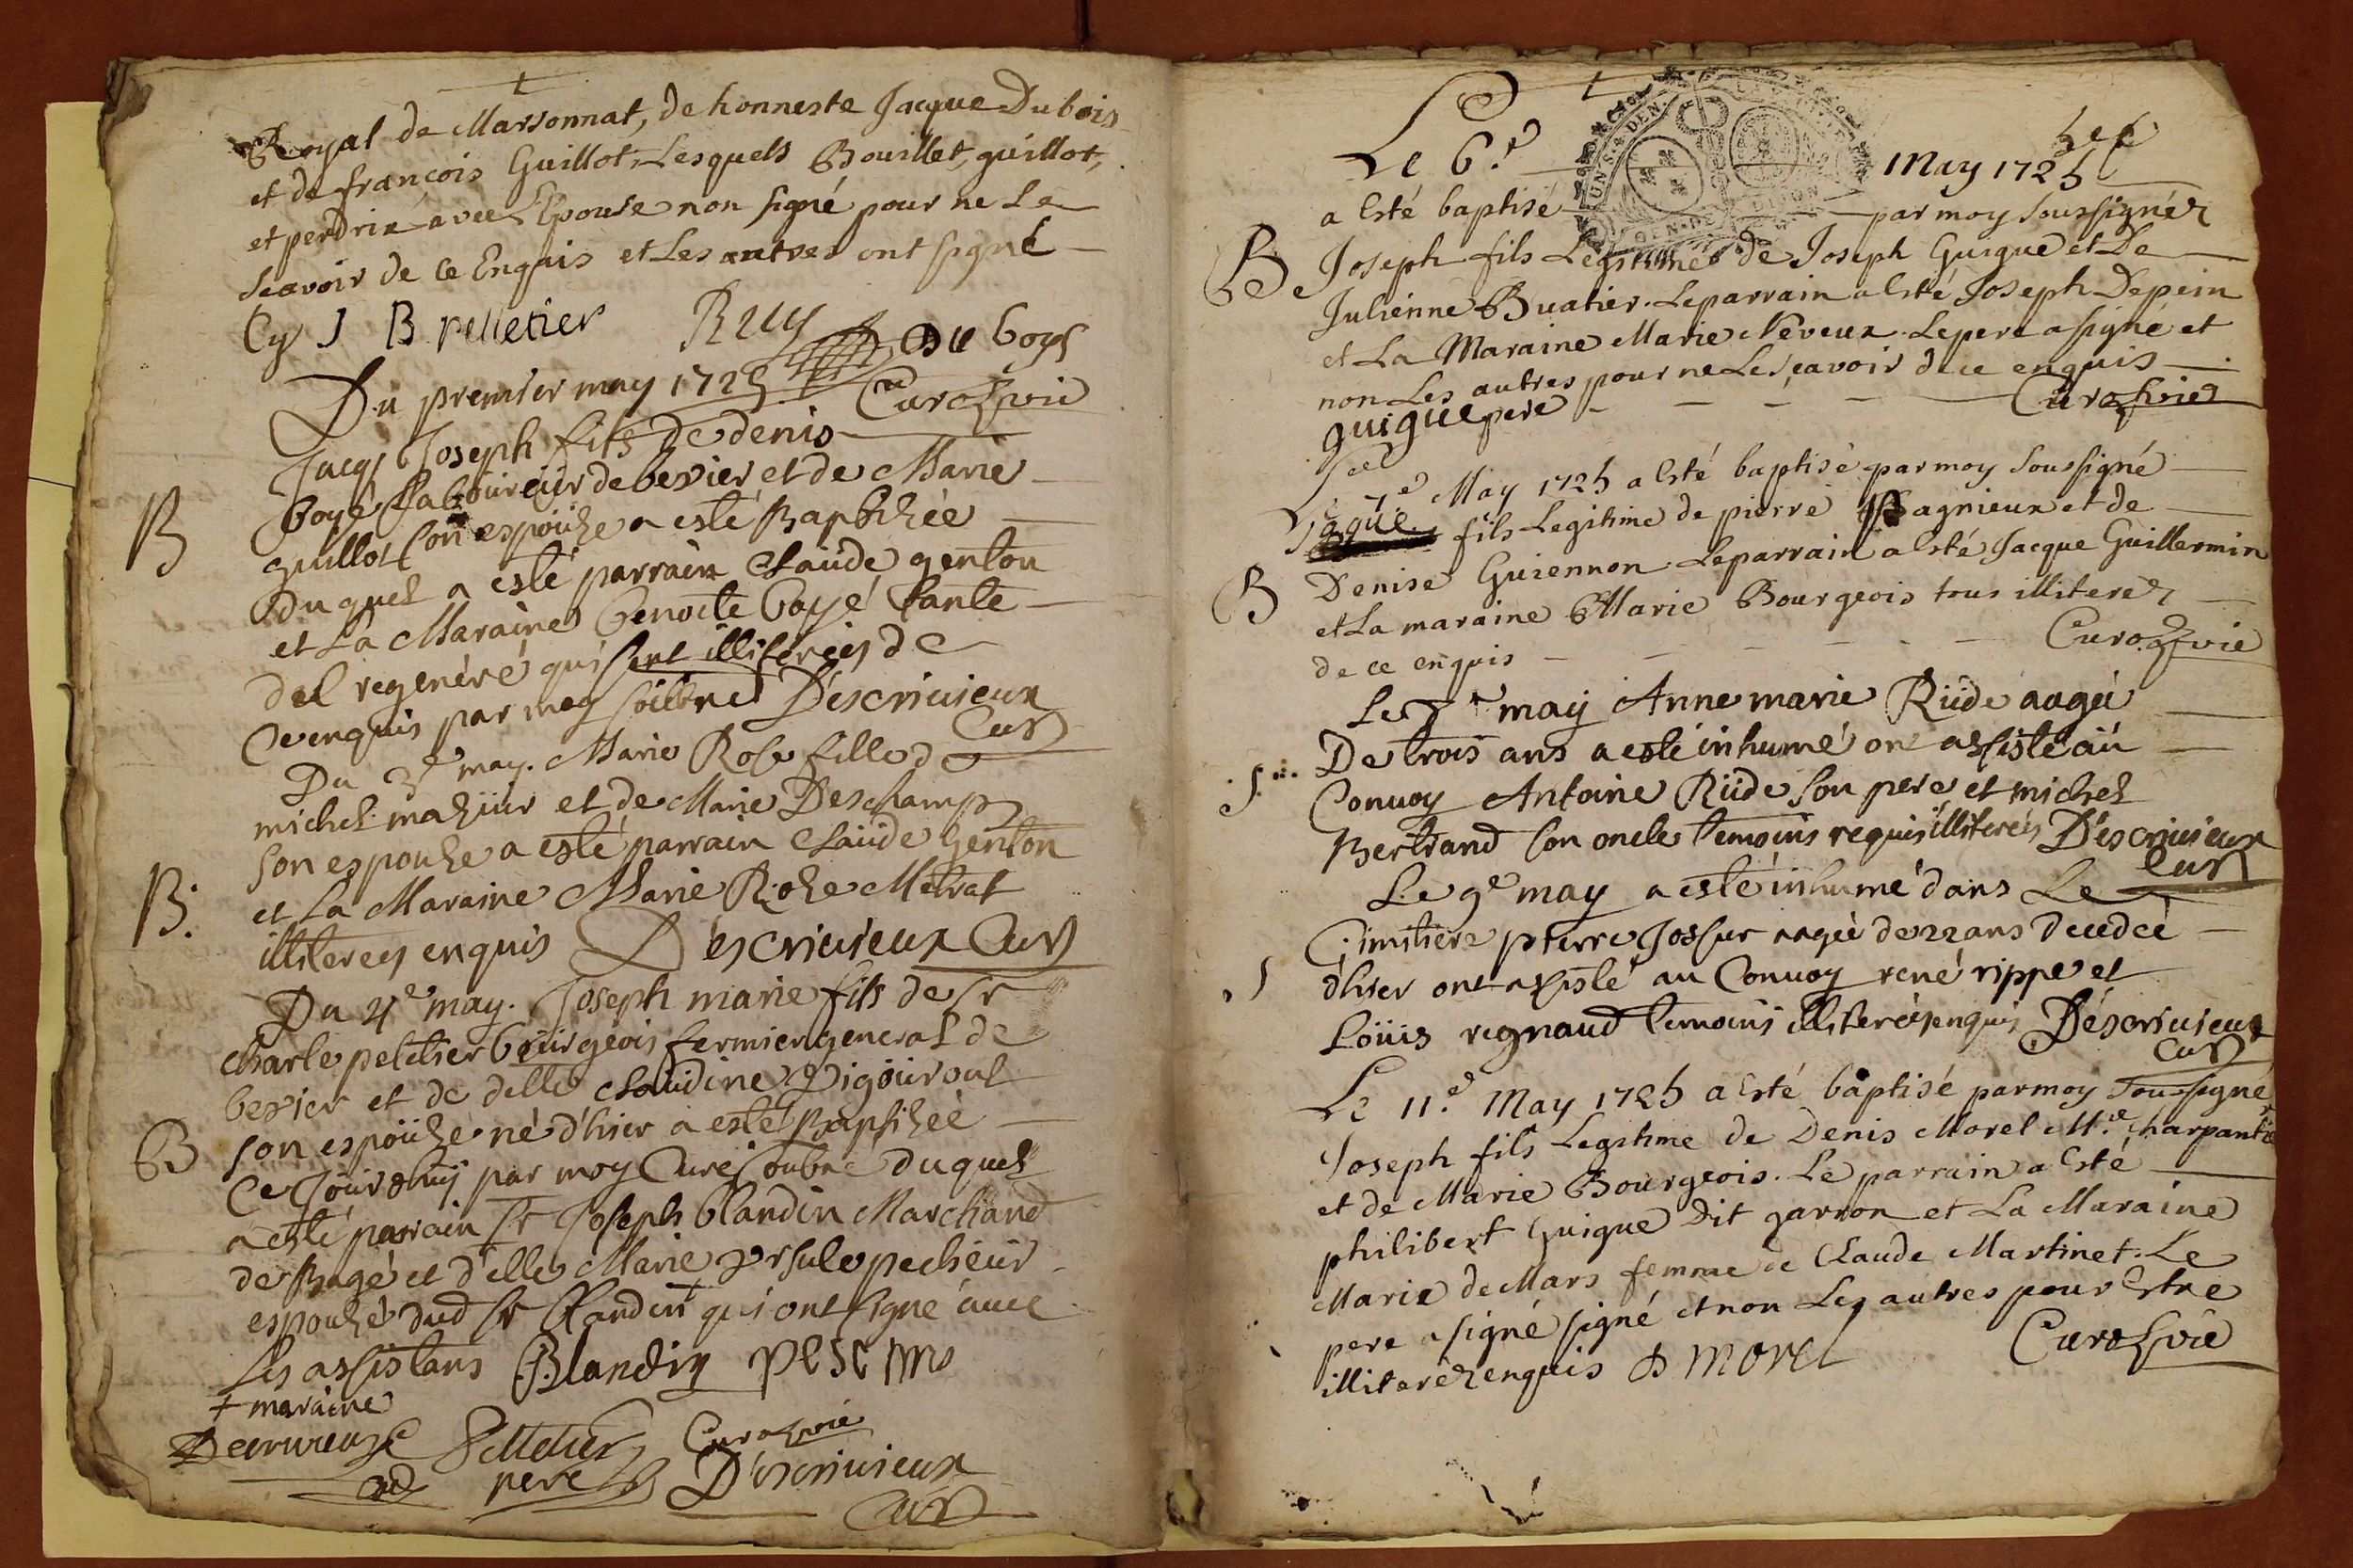 Royal de Marsonnat, de honneste Jacque Dubois
et de françois Guillot, Lesquels Bouillet, guillot,
et perdrix avec L'Epouse non signé pour ne Le
Scavoir de ce Enquis et Les autres ont signé
Cy J B pelletier Du boys
Du premier may 1725 Curé
Jacqs Joseph fils de denis
boyé Laboureur de bexier et de Marie
guillot son espouze a esté Baptizée
duquel a esté parrain Claude genton
et La Maraine benoite boyé tante
del regeneré qui sont illiterez de
Ce enquis par moy soubné D'escriuieux
Curé
Du 3e may. Marie Rose fille de
michel mazuir et de Marie Deschamp
son espouze a esté parrain Claude Genton
et La Maraine Marie Roze Metrat
illiterez enquis D'escriuieux Curé
Du 4e may. Joseph marie fils de sr
Charle peletier bourgeois fermier general de
bexier et de delle Claudine
son espouze né d'hier a esté Baptizée
Ce Jourdhuy par moy Curé soubné duquel
a esté parrain sr Joseph blandin Marchand
de Bagé et d'elle Marie Ursule pecheur
espouze dud sr blandin qui ont signé auec
Les assistans Blandin
+ maraine
Decrivieuxe Pelletier
pere D'escriuieux
Curé
B
B.
B
Le 6.e May 1725
a Esté baptisé par moy soussigné
B Joseph fils Legitime de Joseph Guigue et De
Julienne Buatier. Le parrain a Esté Joseph Depein
et La Maraine Marie Neveux. Le pere a signé et
non Les autres pour ne Le sçavoir de ce enquis
guigue pere
Le 7.e May 1725 a Esté baptisé par moy soussigné
Jaque fils Legitime de pierre Pagnieux et de
B Denise Guiennon Le parrain a Esté Jacque Guillermin
et La maraine Marie Bourgeois tous illiterez
de ce enquis
Le 7e may Anne marie Rüde aagée
S De trois ans a esté inhumé ont assisté au
Conuoy Antoine Rüde son pere et michel
Bertrand son oncle temoins requis illiterés D'escriuieux
Curé
Le 9e may a esté inhumé dans Le
Cimitiere pierre Jossur aagé de 22 ans decedeé
S d'hier ont assisté au Conuoy rené rippe et
Loüis regnaud temoins illiterés enquis D'escriuieux
Curé
Le 11.e May 1725 a Esté baptisé par moy soussigné
Joseph fils Legitime de Denis Morel M.re charpantie
et de Marie Bourgeois. Le parrain a Esté
philibert Guigue Dit garron et La Maraine
Marie de Mars femme de Claude Martinet. Le
pere a signé signé et non Les autres pour Estre
illiterez enquis D MOREL